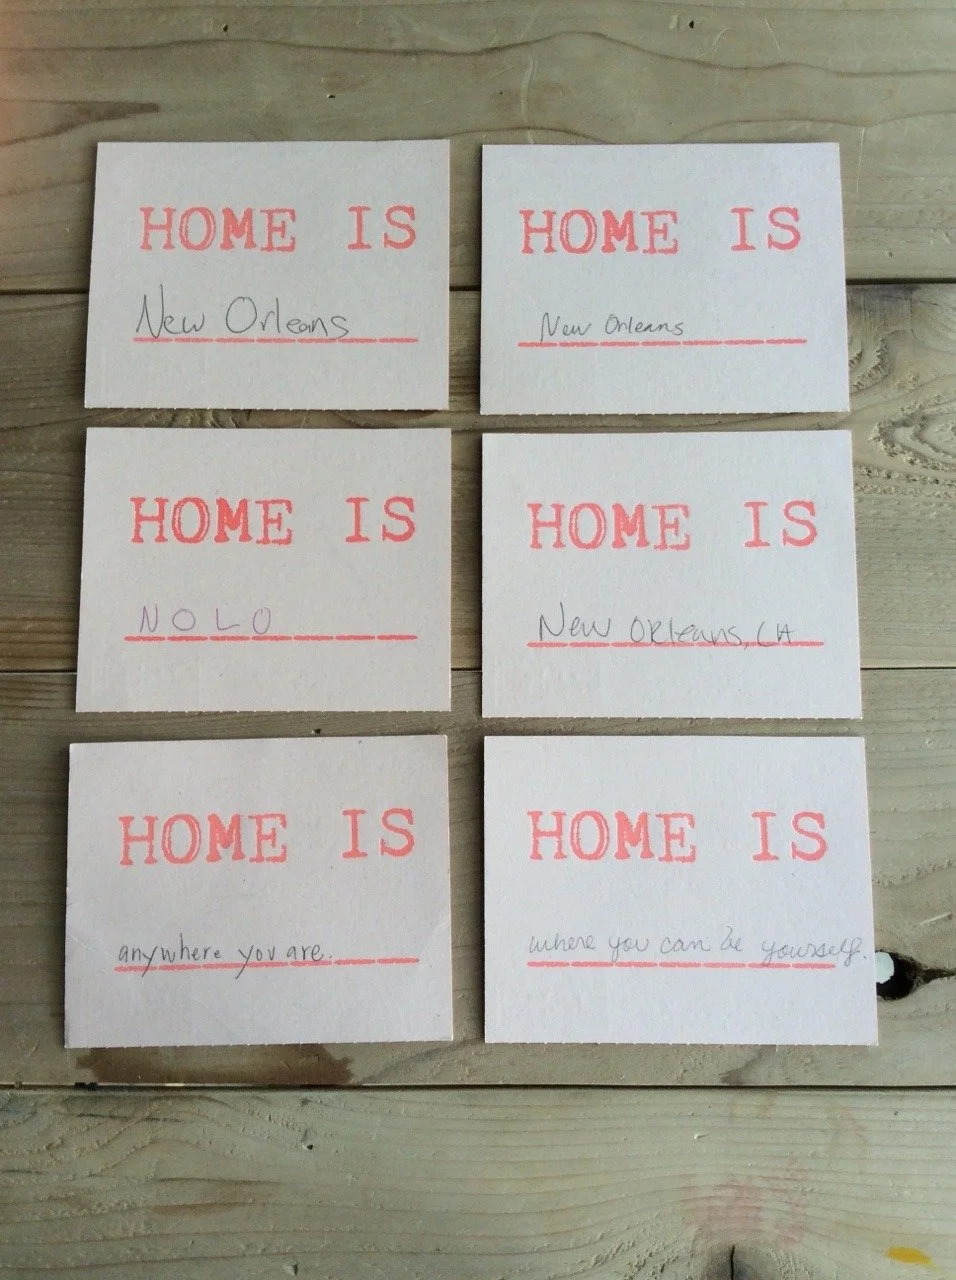 HOME IS
New Orleans
HOME IS
New Orleans
HOME IS
NOLO
HOME IS
New ORleans, LA
HOME IS
anywhere you are.
HOME IS
where you can be yourself.